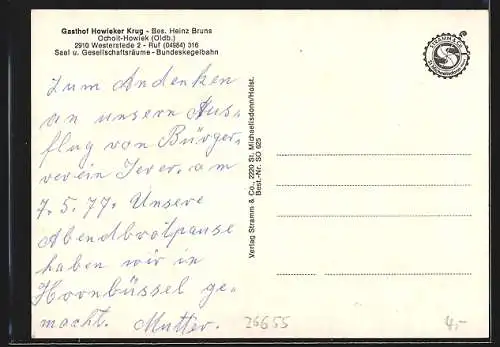 Gasthof Howieker Krug - Bes. Heinz Bruns
Ocholt-Howiek (Oldb.)
2910 Westerstede 2 - Ruf (04954) 316
Saal u. Gesellschaftsräume - Bundeskegelbahn
Zum Andenken
an unsern Aus-
flug von Bürger-
verein Jever. am
7.5.77. Unsere
Abendbrotpause
haben wir in
Hornbüssel ge-
macht. Mutter.
Verlag Stramm & Co., 2220 St. Michaelisdonn/Holst.
Best.-Nr. SO 625
STRAMM & CO
26655
4,-